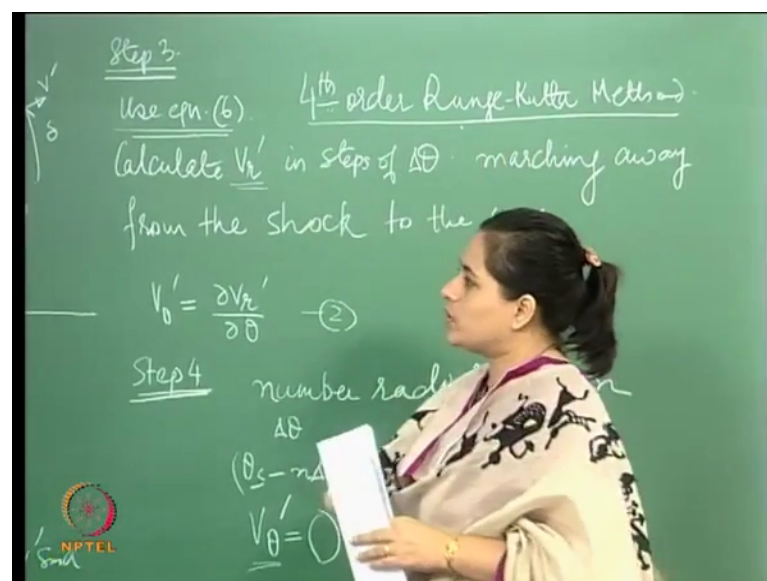 Step 3.
Use eqn. (6). 4th order Runge-Kutta Method.
Calculate Vr' in steps of Δθ. marching away
from the shock to the
Vθ' = ∂Vr'/∂θ —②
Step 4 number radi
Δθ
(θs - nΔ
Vθ' = 0
V'
δ
NPTEL